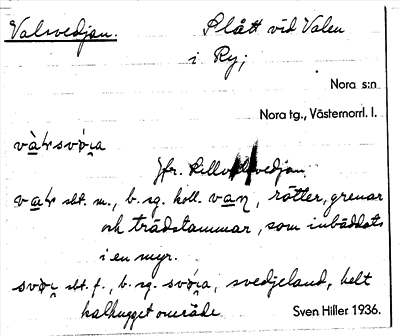 Valsvedjan.
Slått vid Valen
i Ry;
Nora s:n
Nora tg., Västernorrl. l.
Jfr. svedjan.
sbt. m., b. sg. koll. van, rötter, grenar
och trädstammar, som inbäddats
i en myr.
sbt. f., b. sg. svedjeland, helt
kalhugget område
Sven Hiller 1936.